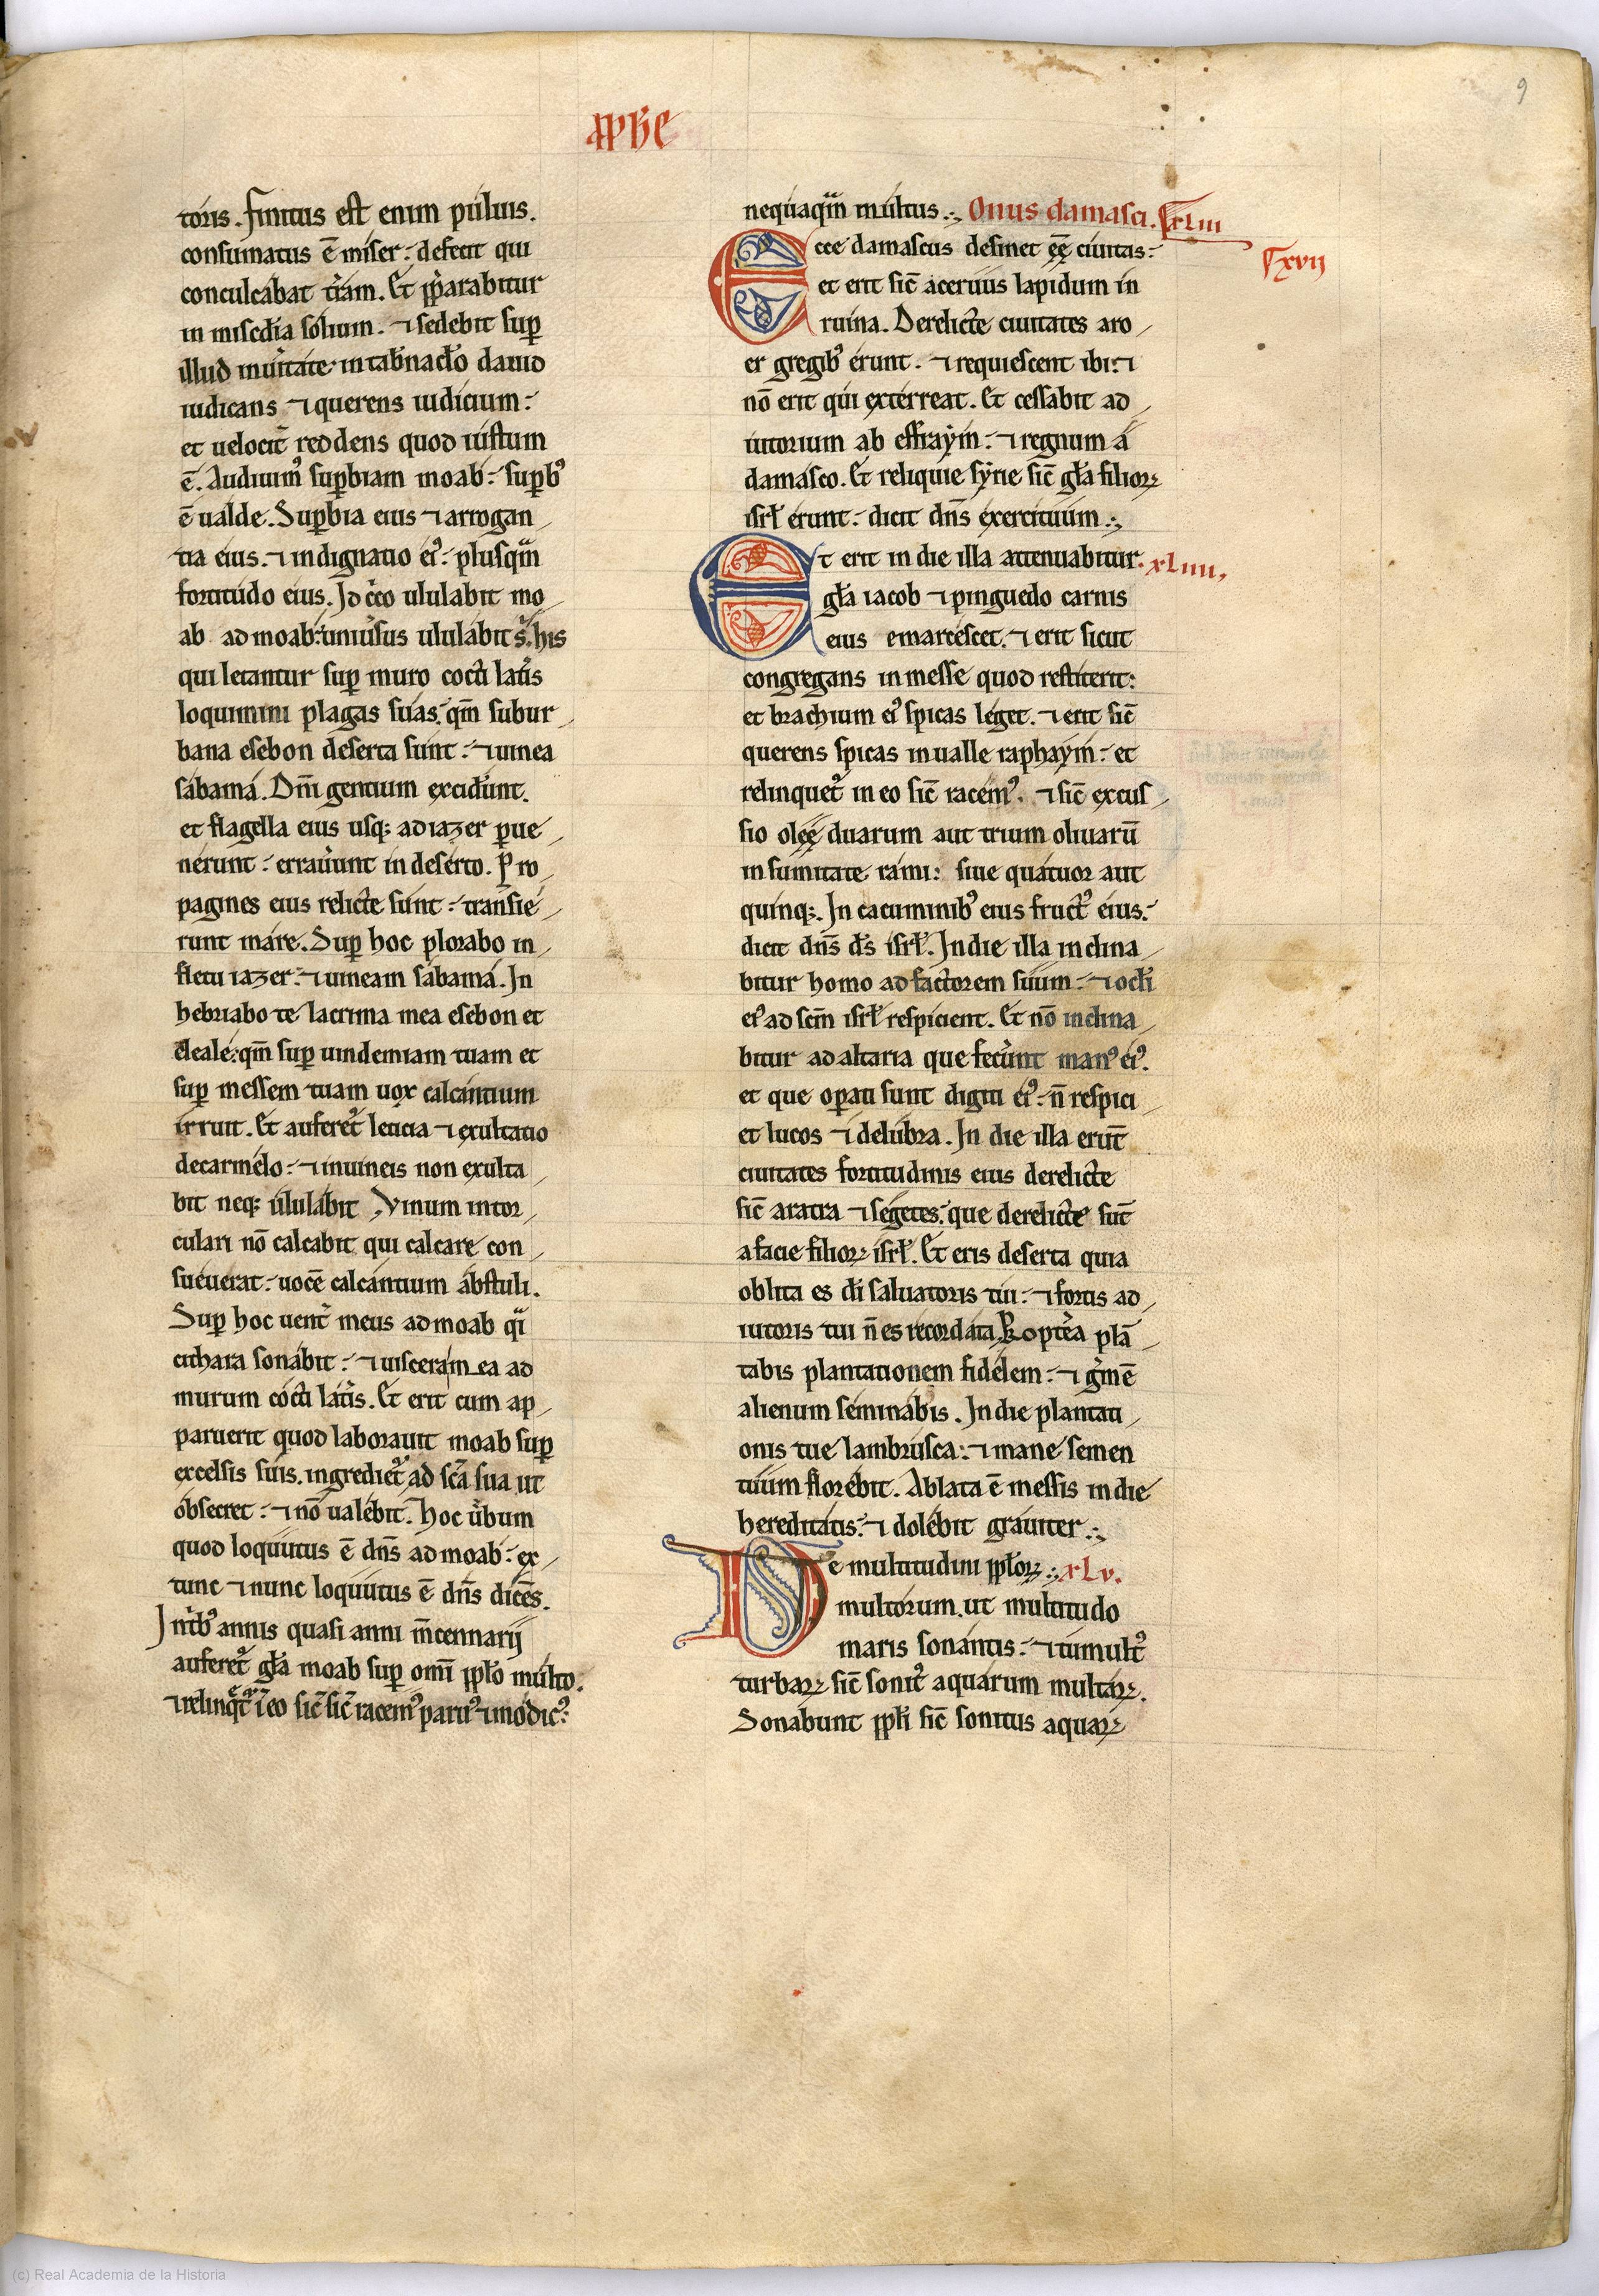 9
ꝓphe
toris. Finitus est enim puluis.
consumatus ē miser: defecit qui
conculcabat t̉ram. Et p̄parabitur
in misc̄dia solium. ⁊ sedebit suꝑ
illud in ũitate in tab̃nac̃lo dauid
iudicans ⁊ querens iudicium:
et uelocit̉ reddens quod iustum
ē. Audiuimꝰ suꝑbiam moab: suꝑbꝰ
ē ualde. Suꝑbia eius ⁊ arrogan
tia eius. ⁊ indignatio eiꝰ: plusqm̄
fortitudo eius. Idc̉co ululabit mo
ab ad moab: uniũsus ululabit ṡ. his
qui letantur suꝑ muro cocti lat̉is
loquimini plagas suas. qm̄ subur
bana esebon deserta sunt: ⁊ uinea
sabama. Dn̄i gentium excid̉unt.
et flagella eius usqꝫ ad iazer ꝑue
nerunt: errauẽunt in deserto. Pro
pagines eius relicte sunt: transie
runt mare. Suꝑ hoc plorabo in
fletu iazer: ⁊ uineam sabama. In
hebriabo te lacrima mea esebon et
eleale: qm̄ suꝑ uindemiam tuam et
suꝑ messem tuam uox calcantium
irruit. Et auferet̉ leticia ⁊ exultatio
de carmelo: ⁊ in uineis non exulta
bit neqꝫ ululabit Vinum in tor
culari nō calcabit qui calcare con
sueuerat: uocē calcantium abstuli.
Suꝑ hoc uent̉ meus ad moab q̉i
cithara sonabit: ⁊ uiscera mea ad
murum cocti lat̉is. Et erit cum ap
paruerit quod laborauit moab suꝑ
excelsis suis. ingrediet̉ ad sc̄a sua ut
obsecret: ⁊ nō ualebit. Hoc ũbum
quod loquutus ē dn̄s ad moab: ex
tunc ⁊ nunc loquutus ē dn̄s dicēs.
In tribꝰ annis quasi anni m̄cennarij
auferet̉ gl̄a moab suꝑ om̄i ppl̄o multo.
⁊ relinq̄t̉ ī eo sic̄ sic̄ racemꝰ paruꝰ ⁊ modicꝰ:
nequaqm̄ multus. Onus damasci. xLiii
xvii
Ecce damascus desinet eē ciuitas:
et erit sic̄ aceruus lapidum in
ruina. Derelicte ciuitates aro
er gregibꝰ erunt. ⁊ requiescent ibi: ⁊
nō erit qui exterreat. Et cessabit ad
iutorium ab effraym: ⁊ regnum a
damasco. Et reliquie syrie sic̄ gl̄a filioꝝ
isrl̄ erunt: dicit dn̄s exercituum.
Et erit in die illa attenuabitur. xLiiii.
gl̄a iacob ⁊ pinguedo carnis
eius emarcescet. ⁊ erit sicut
congregans in messe quod restiterit:
et brachium eiꝰ spicas leget. ⁊ erit sic̄
querens spicas in ualle raphaym: et
relinquet̉ in eo sic̄ racemꝰ. ⁊ sic̄ excus
sio oleę duarum aut trium oliuarū
in sumitate rami: siue quatuor aut
quinqꝫ. In cacuminibꝰ eius fructꝰ eius:
dicit dn̄s ds̄ isrl̄. In die illa inclina
bitur homo ad factorem suum: ⁊ ocl̄i
eiꝰ ad sc̄m isrl̄ respicient. Et nō inclina
bitur ad altaria que fecẽunt manꝰ eiꝰ.
et que oꝑati sunt digiti eiꝰ: n̄ respici
et lucos ⁊ delubra. In die illa erūt
ciuitates fortitudinis eius derelicte
sic̄ aratra ⁊ segetes. que derelicte sūt
a facie filioꝝ isrl̄. Et eris deserta quia
oblita es di saluatoris tui: ⁊ fortis ad
iutoris tui n̄ es recordata Propt̉ea plā
tabis plantationem fidelem: ⁊ g̉mē
alienum seminabis. In die plantati
onis tue lambrusca: ⁊ mane semen
tuum florebit. Ablata ē messis in die
hereditatis: ⁊ dolebit grauiter.
De multitudini ppl̄oꝝ. xLv.
multorum. ut multitudo
maris sonantis: ⁊ tumultꝰ
turbaꝝ sic̄ sonitꝰ aquarum multaꝝ.
Sonabunt ppl̄i sic̄ sonitus aquaꝝ
(c) Real Academia de la Historia